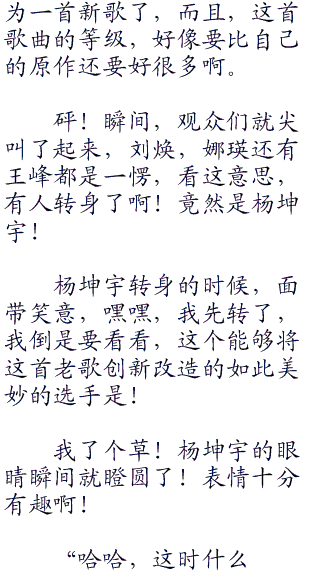 为一首新歌了，而且，这首
歌曲的等级，好像要比自己
的原作还要好很多啊。
砰！瞬间，观众们就尖
叫了起来，刘焕，娜瑛还有
王峰都是一愣，看这意思，
有人转身了啊！竟然是杨坤
宇！
杨坤宇转身的时候，面
带笑意，嘿嘿，我先转了，
我倒是要看看，这个能够将
这首老歌创新改造的如此美
妙的选手是！
我了个草！杨坤宇的眼
睛瞬间就瞪圆了！表情十分
有趣啊！
“哈哈，这时什么